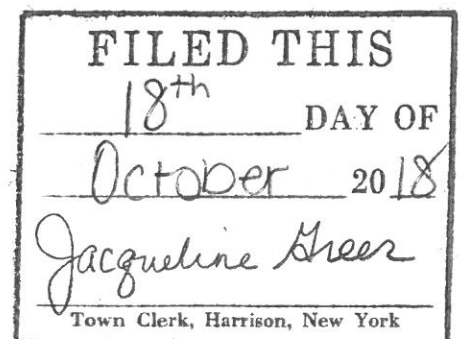 FILED THIS
18th DAY OF
October 2018
Jacqueline Greer
Town Clerk, Harrison, New York